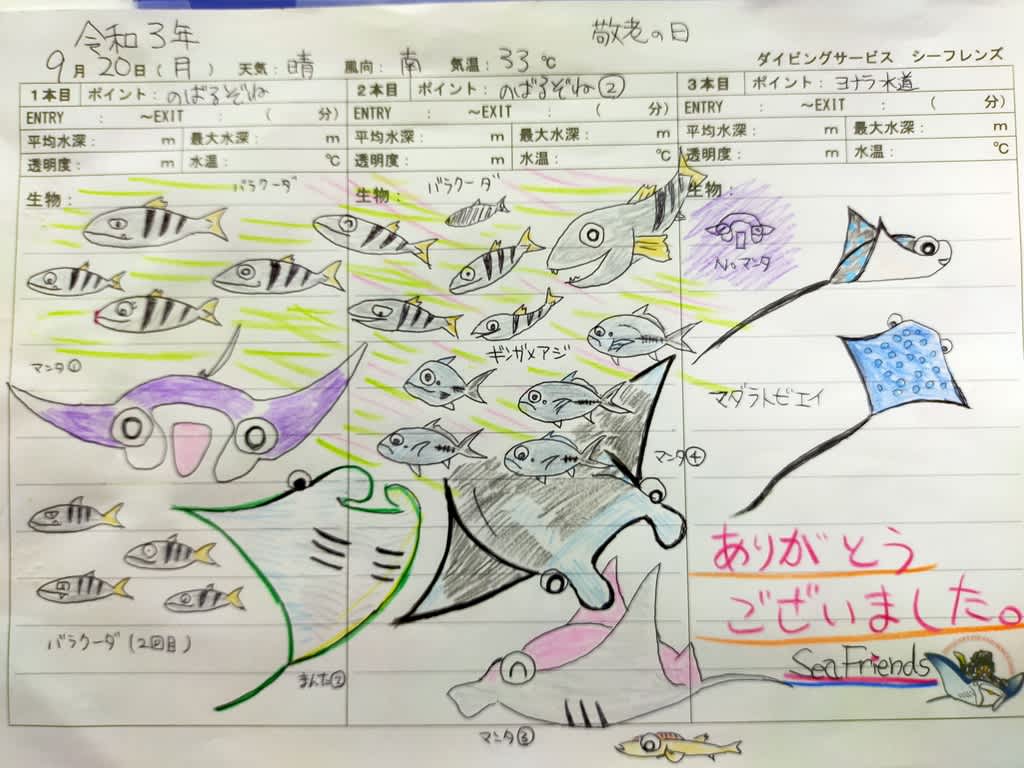 令和3年
敬老の日
9月20日(月) 天気:晴 風向:南 気温:33℃
ダイビングサービス シーフレンズ
1本目 ポイント:のばるぞね
ENTRY : ~EXIT : ( 分)
平均水深: m 最大水深: m
透明度: m 水温: ℃
生物:
バラクーダ
マンタ①
バラクーダ(2回目)
まんた②
2本目 ポイント:のばるぞね②
ENTRY : ~EXIT : ( 分)
平均水深: m 最大水深: m
透明度: m 水温: ℃
生物:
バラクーダ
ギンガメアジ
マンタ④
マンタ③
3本目 ポイント:ヨナラ水道
ENTRY : ~EXIT : ( 分)
平均水深: m 最大水深: m
透明度: m 水温: ℃
生物:
Noマンタ
マダラトビエイ
ありがとう
ございました。
Sea Friends